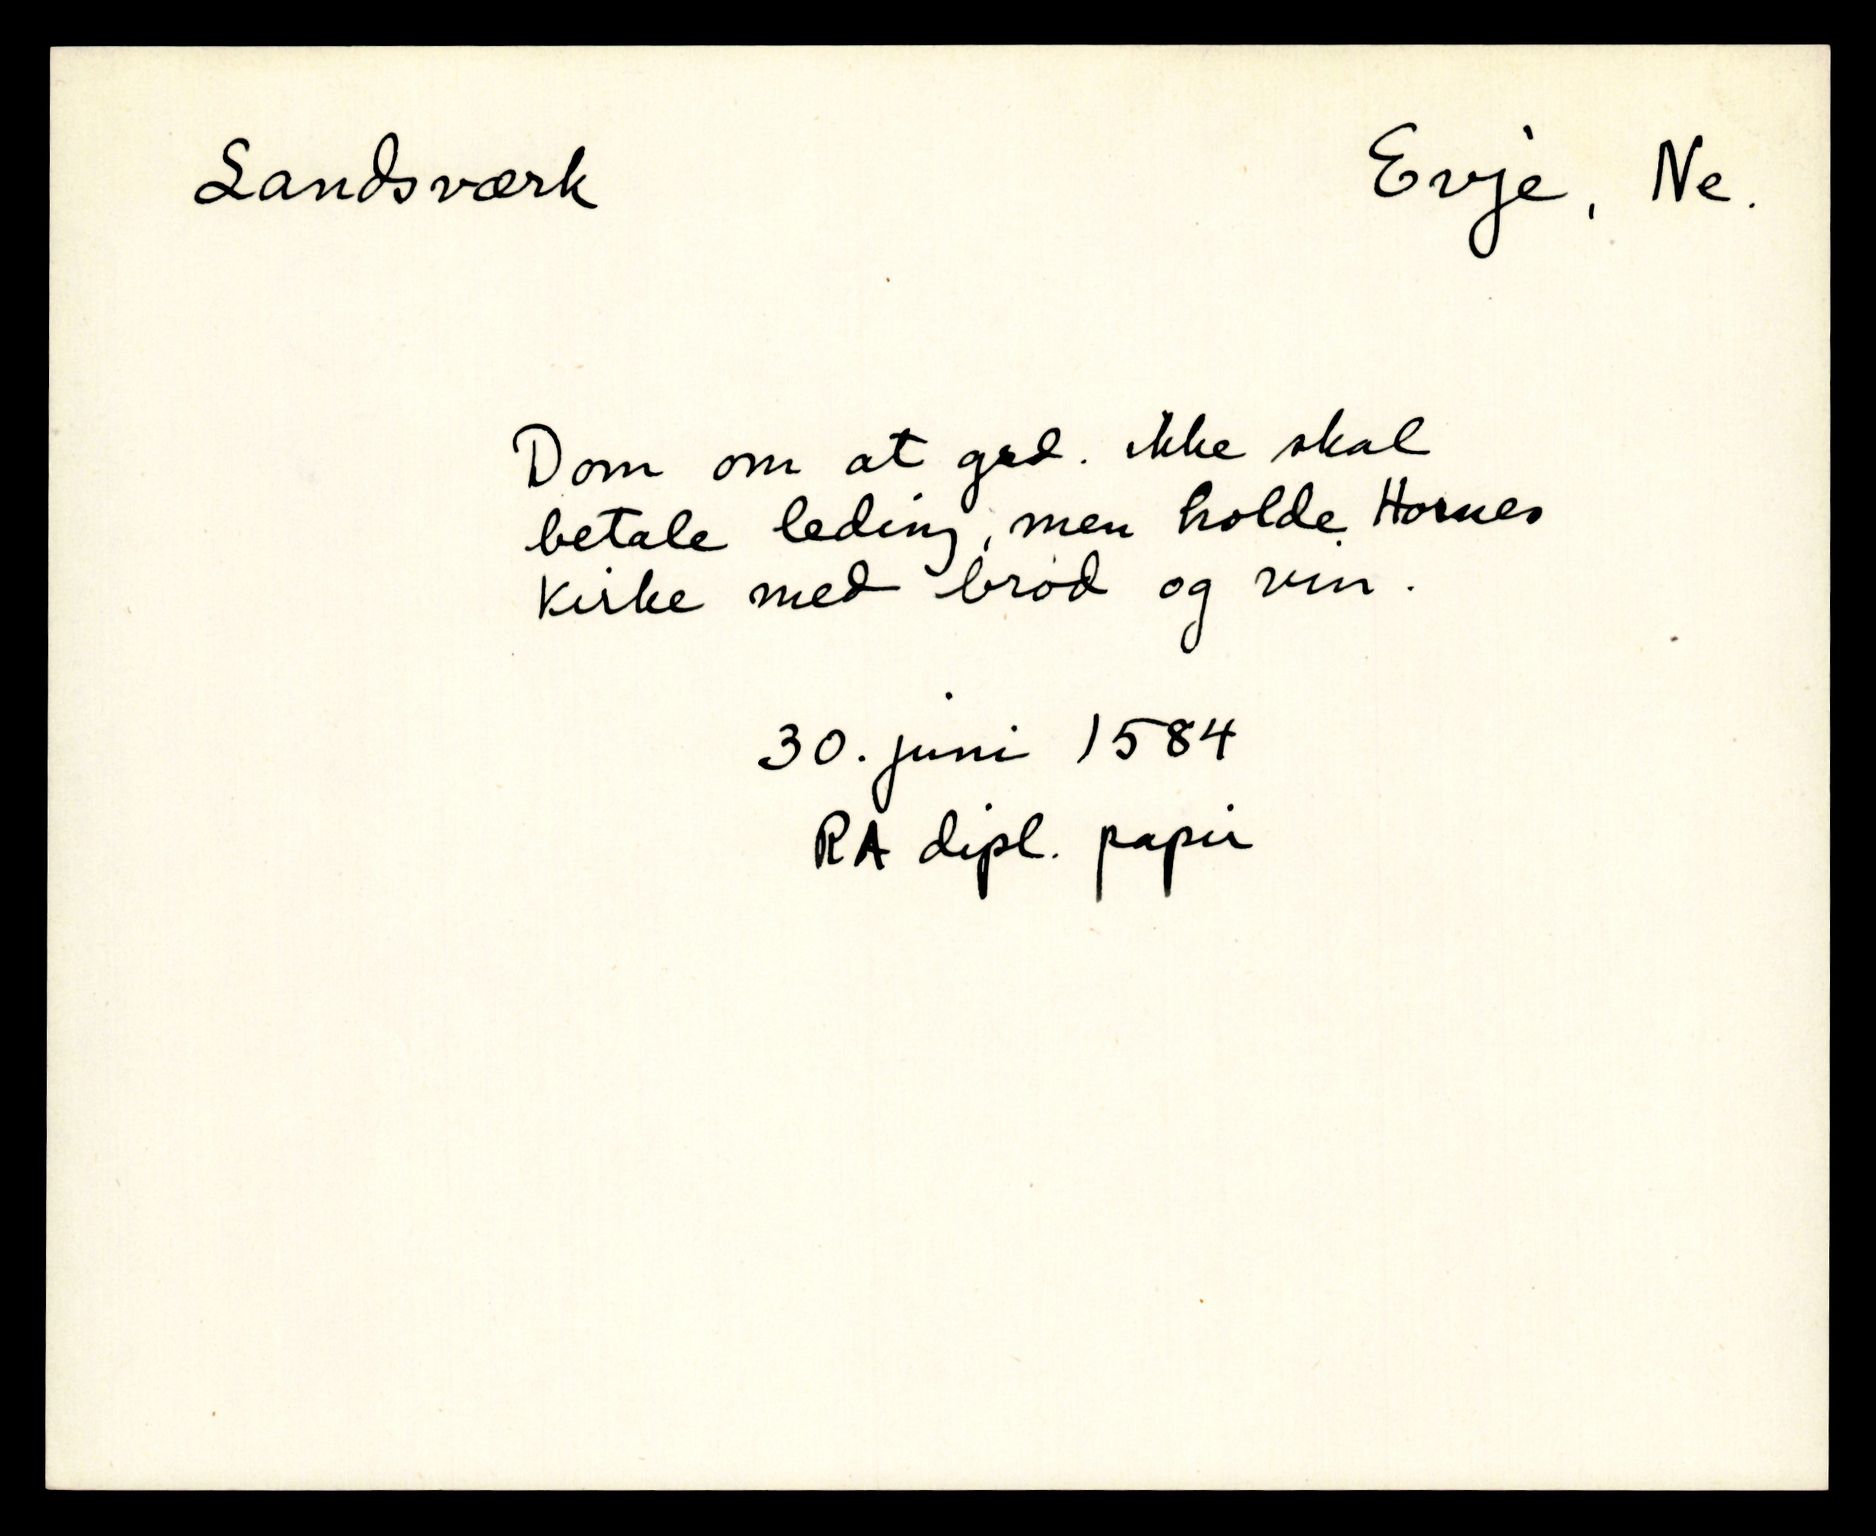 Landsværk
Evje, Ne.
Dom om at grd. ikke skal
betale leding, men holde Hornes
Kirke med brød og vin.
30. juni 1584
RA dipl. papir